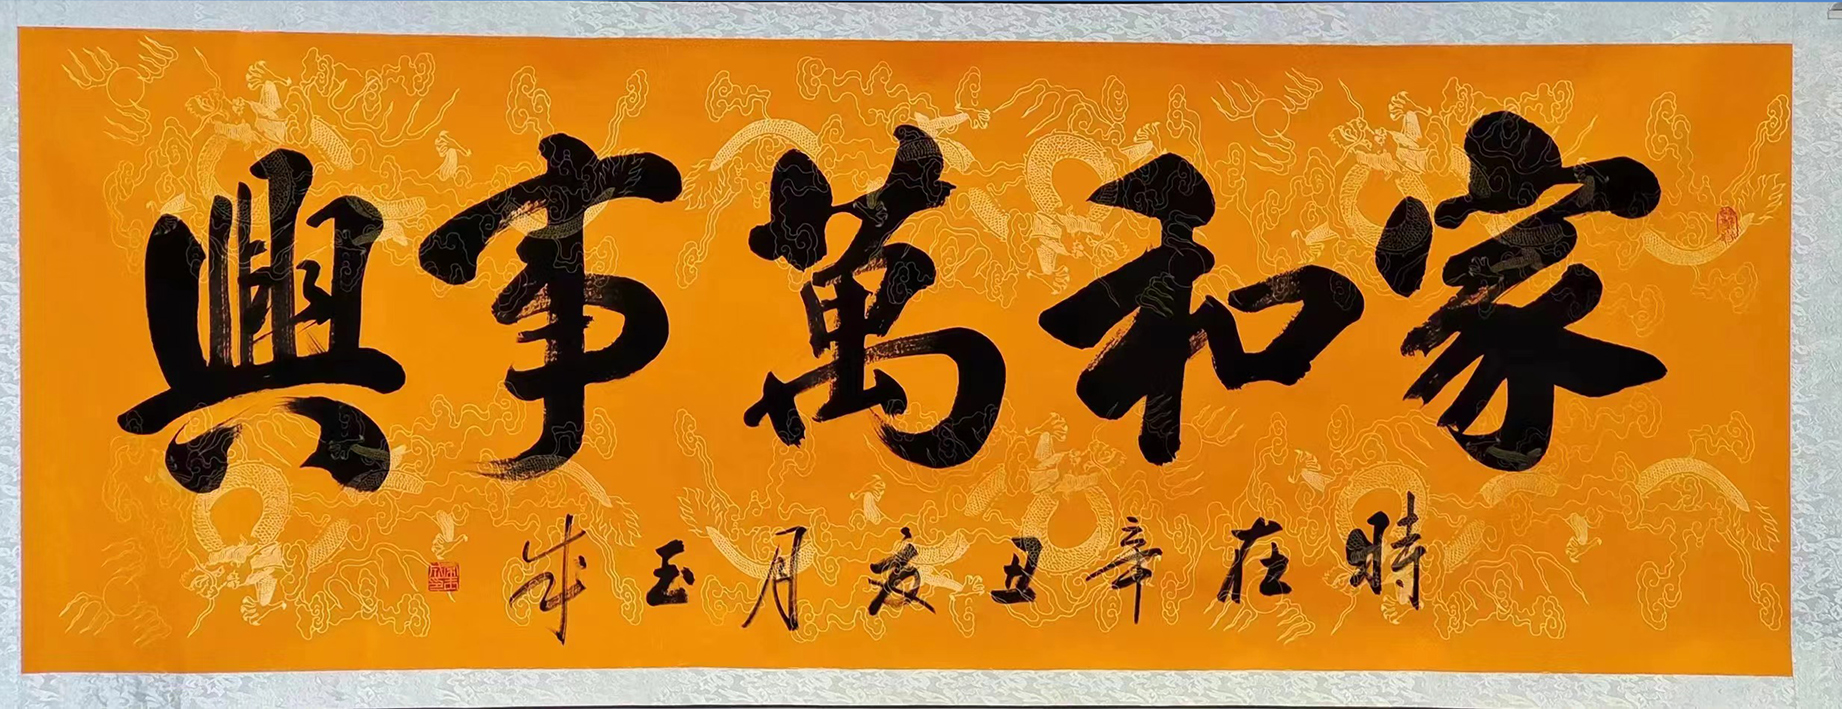 家和萬事興
時在辛丑夏月玉